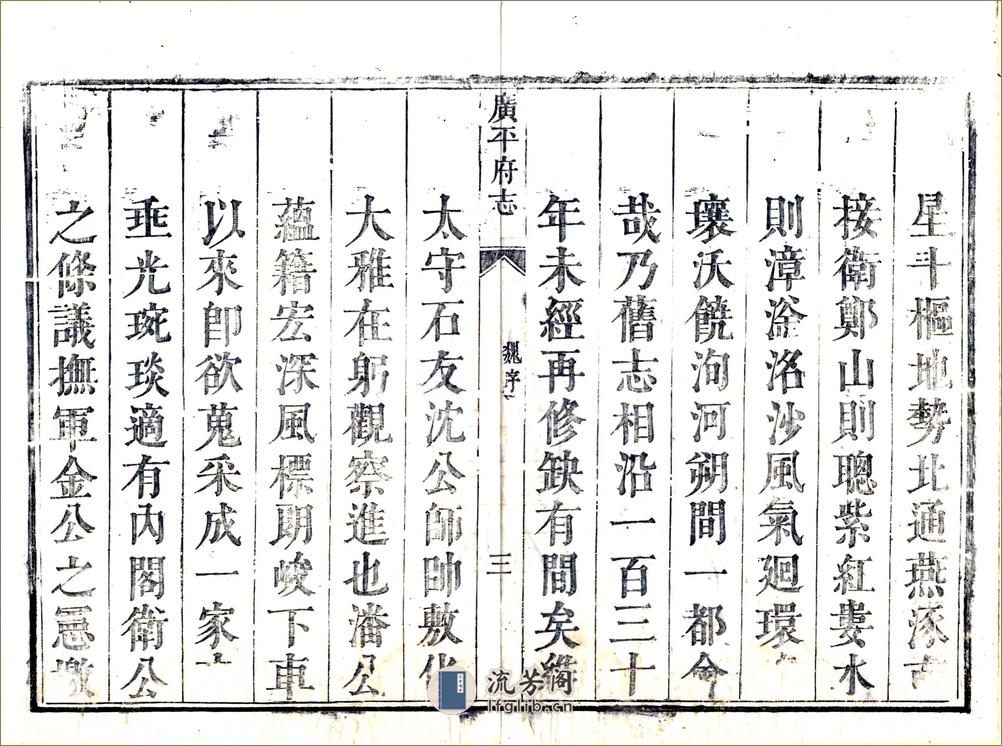 星斗樞地勢北通燕涿古
接衛鄭山則聰紫紅婁水
則漳滏洺沙風氣廻環
壤沃饒洵河朔間一都會
哉乃舊志相沿一百三十
年未經再修缺有間矣維
廣平府志
魏序
三
太守石友沈公師帥敷化
大雅在躬觀察進也潘公
蘊籍宏深風標朗峻下車
以來卽欲蒐采成一家
垂光琬琰適有內閣衛公
之條議撫軍金公之憲檄
流芳阁
lfglib.cn